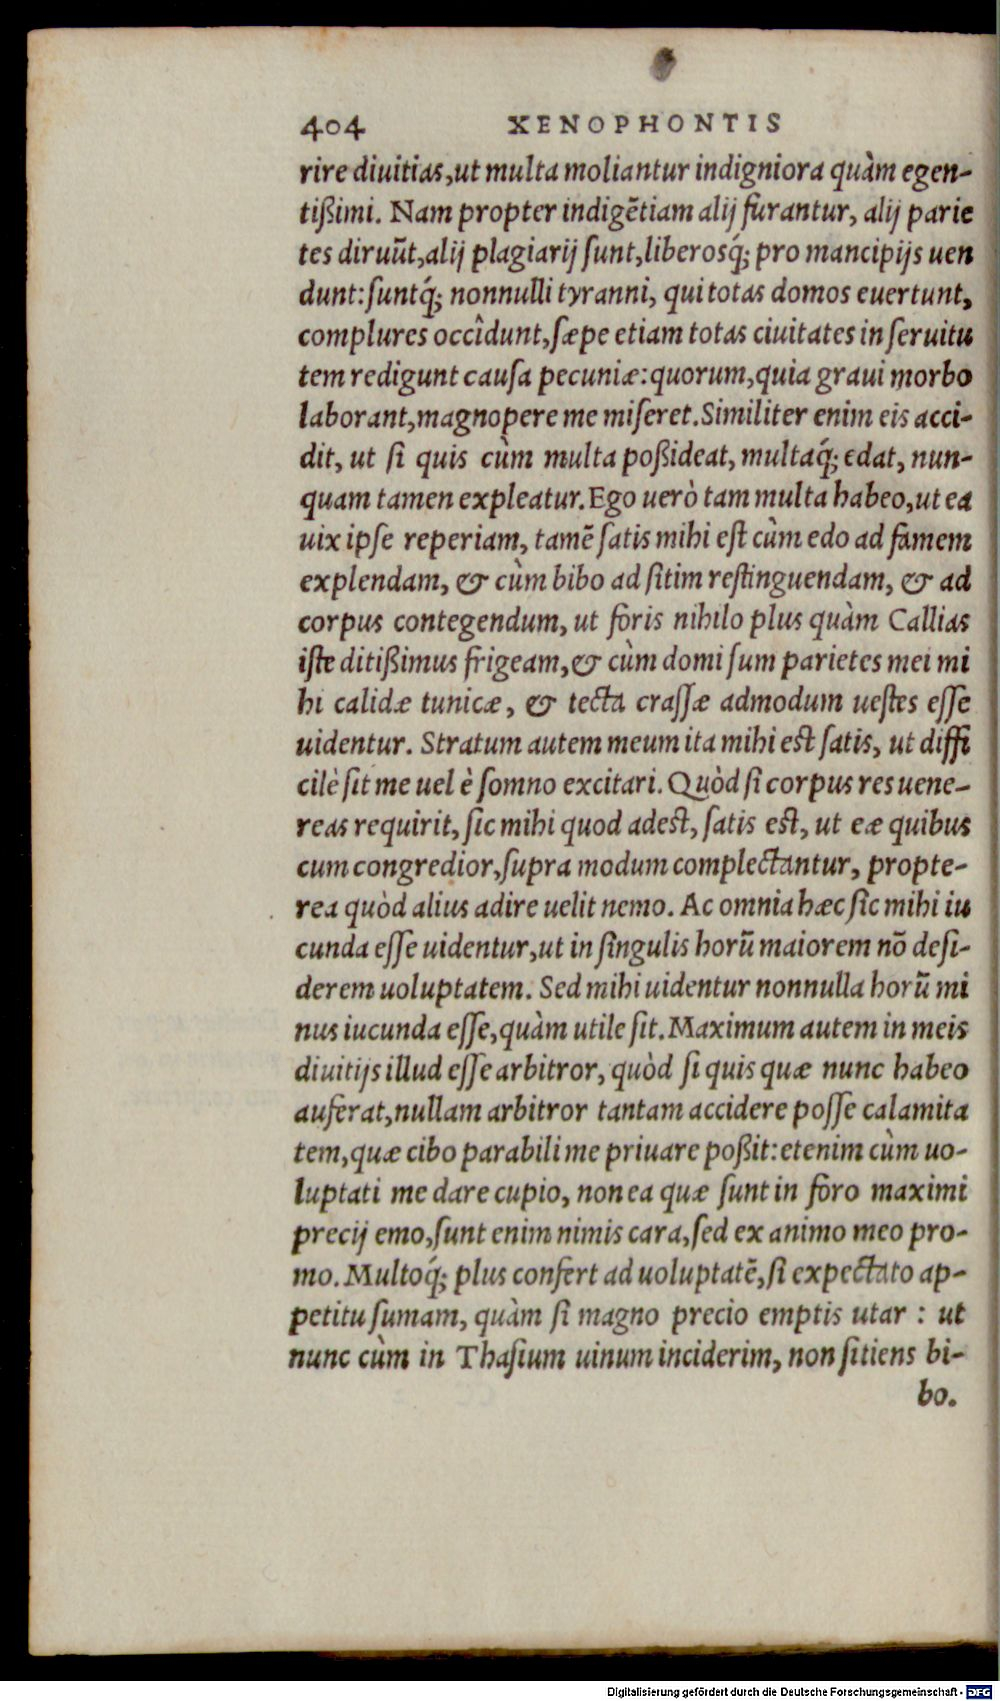 404 XENOPHONTIS
rire diuitias, ut multa moliantur indigniora quàm egen-
tißimi. Nam propter indigẽtiam alij furantur, alij parie
tes diruũt, alij plagiarij ſunt, liberosq́; pro mancipijs uen
dunt: ſuntq́; nonnulli tyranni, qui totas domos euertunt,
complures occîdunt, ſæpe etiam totas ciuitates in ſeruitu
tem redigunt cauſa pecuniæ: quorum, quia graui morbo
laborant, magnopere me miſeret. Similiter enim eis acci-
dit, ut ſi quis cùm multa poßideat, multaq́; edat, nun-
quam tamen expleatur. Ego uerò tam multa habeo, ut ea
uix ipſe reperiam, tamẽ ſatis mihi eſt cùm edo ad famem
explendam, & cùm bibo ad ſitim reſtinguendam, & ad
corpus contegendum, ut foris nihilo plus quàm Callias
iſte ditißimus frigeam, & cùm domi ſum parietes mei mi
hi calidæ tunicæ, & tecta craſſæ admodum ueſtes eſſe
uidentur. Stratum autem meum ita mihi eſt ſatis, ut diffi
cilè ſit me uel è ſomno excitari. Quòd ſi corpus res uene-
reas requirit, ſic mihi quod adeſt, ſatis eſt, ut eæ quibus
cum congredior, ſupra modum complectantur, propte-
rea quòd alius adire uelit nemo. Ac omnia hæc ſic mihi iu
cunda eſſe uidentur, ut in ſingulis horũ maiorem nõ deſi-
derem uoluptatem. Sed mihi uidentur nonnulla horũ mi
nus iucunda eſſe, quàm utile ſit. Maximum autem in meis
diuitijs illud eſſe arbitror, quòd ſi quis quæ nunc habeo
auferat, nullam arbitror tantam accidere poſſe calamita
tem, quæ cibo parabili me priuare poßit: etenim cùm uo-
luptati me dare cupio, non ea quæ ſunt in foro maximi
precij emo, ſunt enim nimis cara, ſed ex animo meo pro-
mo. Multoq́; plus confert ad uoluptatẽ, ſi expectato ap-
petitu ſumam, quàm ſi magno precio emptis utar : ut
nunc cùm in Thaſium uinum inciderim, non ſitiens bi-
bo.
Digitalisierung gefördert durch die Deutsche Forschungsgemeinschaft - DFG